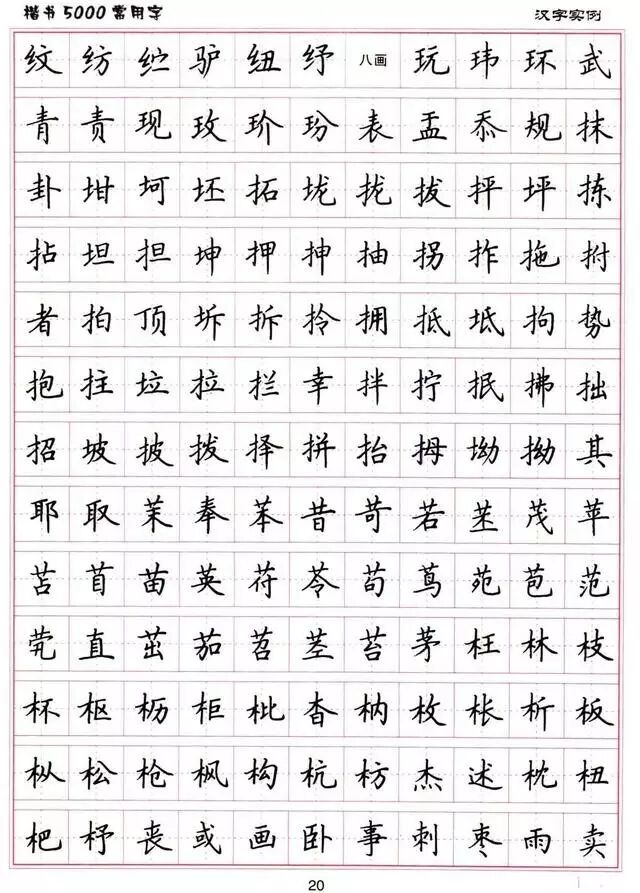 楷书5000常用字 汉字实例
纹纺纻驴纽纾八画玩玮环武
青责现玫玠玢表盂忝规抹
卦坩坷坯拓垅拢拔抨坪拣
拈坦担坤押抻抽拐拃拖拊
者拍顶坼拆拎拥抵坻拘势
抱拄垃拉拦幸拌拧抿拂拙
招坡披拨择拚抬拇坳拗其
耶取茉奉苯昔苛若苤茂苹
苫苜苗英苻苓苟茑苑苞范
茕直茁茄苕茎苔茅枉林枝
杯枢枥柜枇杳枘枚枨析板
枞松枪枫构杭枋杰述枕杻
杷杼丧或画卧事刺枣雨卖
20